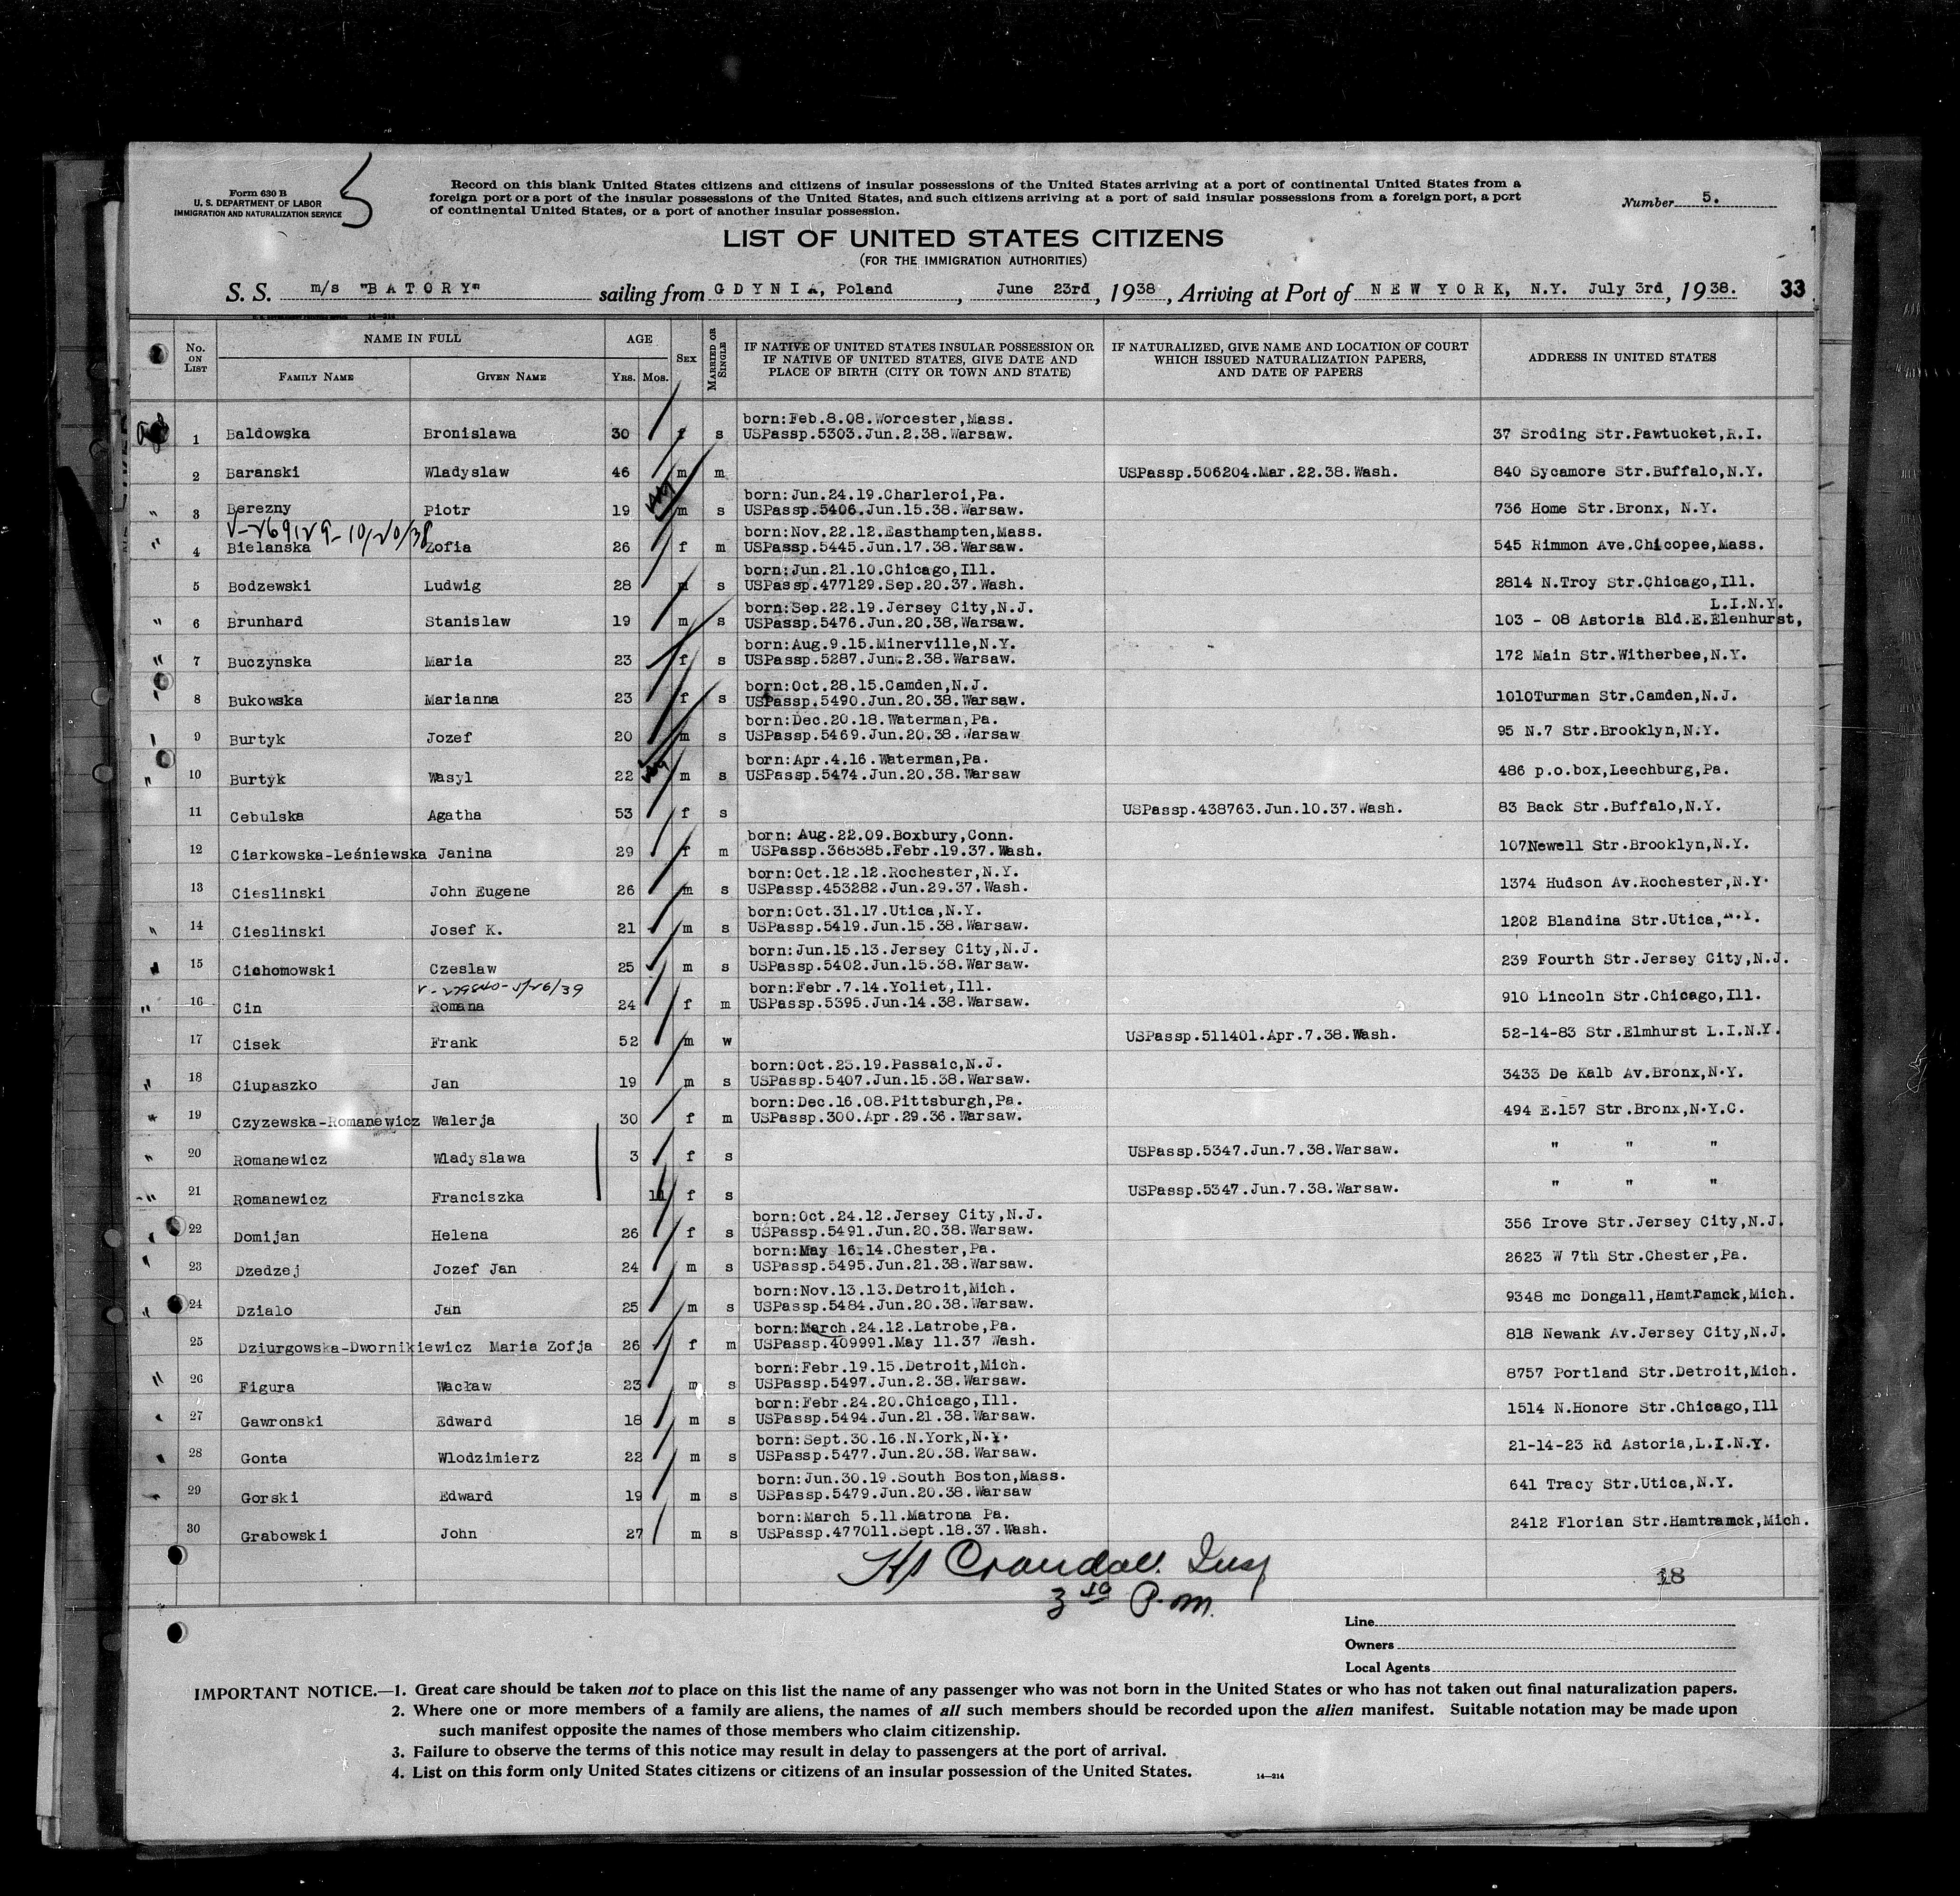 Form 630 B
U. S. DEPARTMENT OF LABOR
IMMIGRATION AND NATURALIZATION SERVICE
5
Record on this blank United States citizens and citizens of insular possessions of the United States arriving at a port of continental United States from a
foreign port or a port of the insular possessions of the United States, and such citizens arriving at a port of said insular possessions from a foreign port, a port
of continental United States, or a port of another insular possession.
Number 5.
LIST OF UNITED STATES CITIZENS
(FOR THE IMMIGRATION AUTHORITIES)
S. S. m/s "BATORY" sailing from GDYNIA, Poland, June 23rd, 1938, Arriving at Port of NEW YORK, N.Y. July 3rd, 1938. 33
No. ON LIST
NAME IN FULL
FAMILY NAME GIVEN NAME
AGE
YRS. MOS.
SEX
MARRIED OR SINGLE
IF NATIVE OF UNITED STATES INSULAR POSSESSION OR
IF NATIVE OF UNITED STATES, GIVE DATE AND
PLACE OF BIRTH (CITY OR TOWN AND STATE)
IF NATURALIZED, GIVE NAME AND LOCATION OF COURT
WHICH ISSUED NATURALIZATION PAPERS,
AND DATE OF PAPERS
ADDRESS IN UNITED STATES
born:Feb.8.08.Worcester,Mass.
1 Baldowska Bronislawa 30 f s USPassp.5303.Jun.2.38.Warsaw. 37 Sroding Str.Pawtucket,R.I.
2 Baranski Wladyslaw 46 m m USPassp.506204.Mar.22.38.Wash. 840 Sycamore Str.Buffalo,N.Y.
born:Jun.24.19.Charleroi,Pa.
" 3 Berezny Piotr 19 m s USPassp.5406.Jun.15.38.Warsaw. 736 Home Str.Bronx, N.Y.
V-269129-10/20/38
born:Nov.22.12.Easthampten,Mass.
" 4 Bielanska Zofia 26 f m USPassp.5445.Jun.17.38.Warsaw. 545 Rimmon Ave.Chicopee,Mass.
born:Jun.21.10.Chicago,Ill.
5 Bodzewski Ludwig 28 m s USPassp.477129.Sep.20.37.Wash. 2814 N.Troy Str.Chicago,Ill.
born:Sep.22.19.Jersey City,N.J. L.I.N.Y.
" 6 Brunhard Stanislaw 19 m s USPassp.5476.Jun.20.38.Warsaw. 103 - 08 Astoria Bld.E.Elenhurst,
born:Aug.9.15.Minerville,N.Y.
" 7 Buczynska Maria 23 f s USPassp.5287.Jun.2.38.Warsaw. 172 Main Str.Witherbee,N.Y.
born:Oct.28.15.Camden,N.J.
" 8 Bukowska Marianna 23 f s USPassp.5490.Jun.20.38.Warsaw. 1010Turman Str.Camden,N.J.
born:Dec.20.18.Waterman,Pa.
9 Burtyk Jozef 20 m s USPassp.5469.Jun.20.38.Warsaw 95 N.7 Str.Brooklyn,N.Y.
born:Apr.4.16.Waterman,Pa.
" 10 Burtyk Wasyl 22 m s USPassp.5474.Jun.20.38.Warsaw 486 p.o.box,Leechburg,Pa.
11 Cebulska Agatha 53 f s USPassp.438763.Jun.10.37.Wash. 83 Back Str.Buffalo,N.Y.
born: Aug.22.09.Boxbury,Conn.
12 Ciarkowska-Leśniewska Janina 29 f m USPassp.368385.Febr.19.37.Wash. 107Newell Str.Brooklyn,N.Y.
born:Oct.12.12.Rochester,N.Y.
13 Cieslinski John Eugene 26 m s USPassp.453282.Jun.29.37.Wash. 1374 Hudson Av.Rochester,N.Y.
born:Oct.31.17.Utica,N.Y.
" 14 Cieslinski Josef K. 21 m s USPassp.5419.Jun.15.38.Warsaw. 1202 Blandina Str.Utica,N.Y.
born:Jun.15.13.Jersey City,N.J.
" 15 Cichomowski Czeslaw 25 m s USPassp.5402.Jun.15.38.Warsaw. 239 Fourth Str.Jersey City,N.J.
born:Febr.7.14.Yoliet,Ill.
" 16 Cin Romana 24 f m USPassp.5395.Jun.14.38.Warsaw. 910 Lincoln Str.Chicago,Ill.
17 Cisek Frank 52 m w USPassp.511401.Apr.7.38.Wash. 52-14-83 Str.Elmhurst L.I.N.Y.
born:Oct.23.19.Passaic,N.J.
" 18 Ciupaszko Jan 19 m s USPassp.5407.Jun.15.38.Warsaw. 3433 De Kalb Av.Bronx,N.Y.
born:Dec.16.08.Pittsburgh,Pa.
" 19 Czyzewska-Romanewicz Walerja 30 f m USPassp.300.Apr.29.36.Warsaw. 494 E.157 Str.Bronx,N.Y.C.
" 20 Romanewicz Wladyslawa 3 f s USPassp.5347.Jun.7.38.Warsaw. " " "
" 21 Romanewicz Franciszka 11 f s USPassp.5347.Jun.7.38.Warsaw. " " "
born:Oct.24.12.Jersey City,N.J.
22 Domijan Helena 26 f s USPassp.5491.Jun.20.38.Warsaw. 356 Irove Str.Jersey City,N.J.
born:May 16.14.Chester,Pa.
23 Dzedzej Jozef Jan 24 m s USPassp.5495.Jun.21.38.Warsaw. 2623 W 7th Str.Chester,Pa.
born:Nov.13.13.Detroit,Mich.
" 24 Dzialo Jan 25 m s USPassp.5484.Jun.20.38.Warsaw. 9348 mc Dongall,Hamtramck,Mich.
born:March.24.12.Latrobe,Pa.
25 Dziurgowska-Dwornikiewicz Maria Zofja 26 f m USPassp.409991.May 11.37 Wash. 818 Newank Av.Jersey City,N.J.
born:Febr.19.15.Detroit,Mich.
" 26 Figura Wacław 23 m s USPassp.5497.Jun.2.38.Warsaw. 8757 Portland Str.Detroit,Mich.
born:Febr.24.20.Chicago,Ill.
27 Gawronski Edward 18 m s USPassp.5494.Jun.21.38.Warsaw. 1514 N.Honore Str.Chicago,Ill
born:Sept.30.16.N.York,N.Y.
28 Gonta Wlodzimierz 22 m s USPassp.5477.Jun.20.38.Warsaw. 21-14-23 Rd Astoria,L.I.N.Y.
born:Jun.30.19.South Boston,Mass.
29 Gorski Edward 19 m s USPassp.5479.Jun.20.38.Warsaw 641 Tracy Str.Utica,N.Y.
born:March 5.11.Matrona Pa.
30 Grabowski John 27 m s USPassp.477011.Sept.18.37.Wash. 2412 Florian Str.Hamtramck,Mich.
Crandall. Insp
18
3 10 P.m.
Line
Owners
Local Agents
IMPORTANT NOTICE.—1. Great care should be taken not to place on this list the name of any passenger who was not born in the United States or who has not taken out final naturalization papers.
2. Where one or more members of a family are aliens, the names of all such members should be recorded upon the alien manifest. Suitable notation may be made upon
such manifest opposite the names of those members who claim citizenship.
3. Failure to observe the terms of this notice may result in delay to passengers at the port of arrival.
4. List on this form only United States citizens or citizens of an insular possession of the United States.
14—214